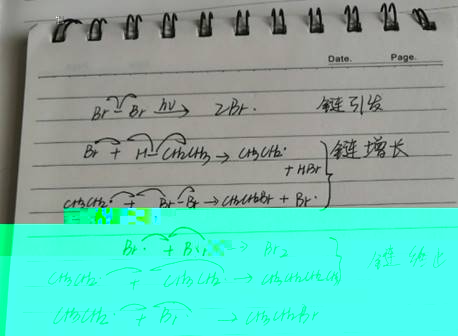 Date. Page.
Br–Br hν→ 2Br· 链引发
Br + H–CH₂CH₃ → CH₃CH₂· + HBr 链增长
CH₃CH₂· + Br–Br → CH₃CH₂Br + Br·
Br· + → Br₂ 链终止
CH₃CH₂· + CH₃CH₂· → CH₃CH₂CH₂CH₃
CH₃CH₂· + Br· → CH₃CH₂Br